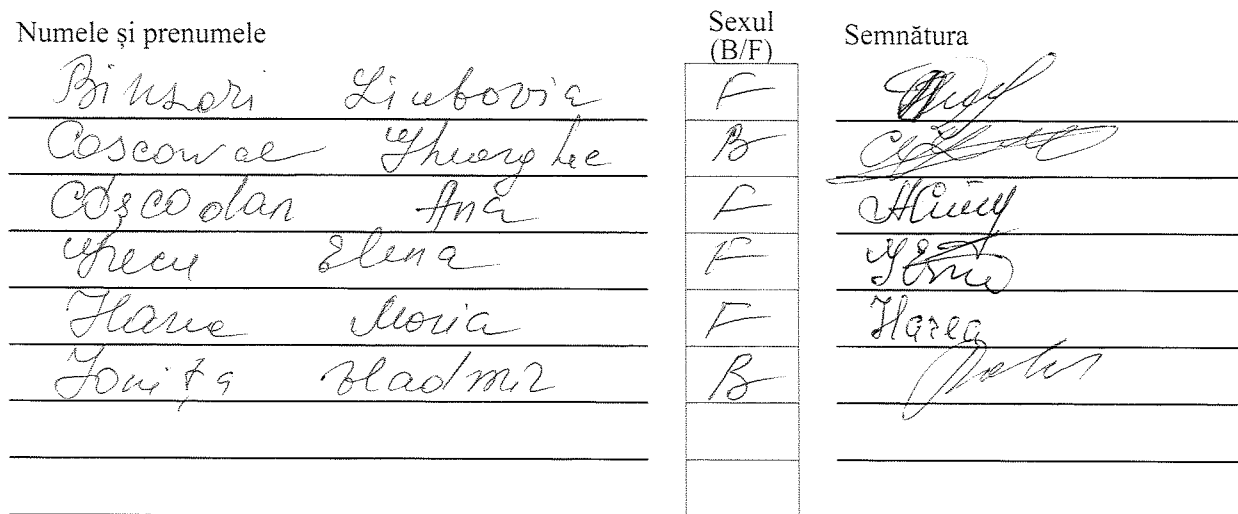 Numele și prenumele Sexul (B/F) Semnătura
Binzari Liubovia F
Coscowal Gheorghe B
Coșcodan Ana F
Grecu Elena F
Harea Maria F Harea
Ioniță Vladmir B